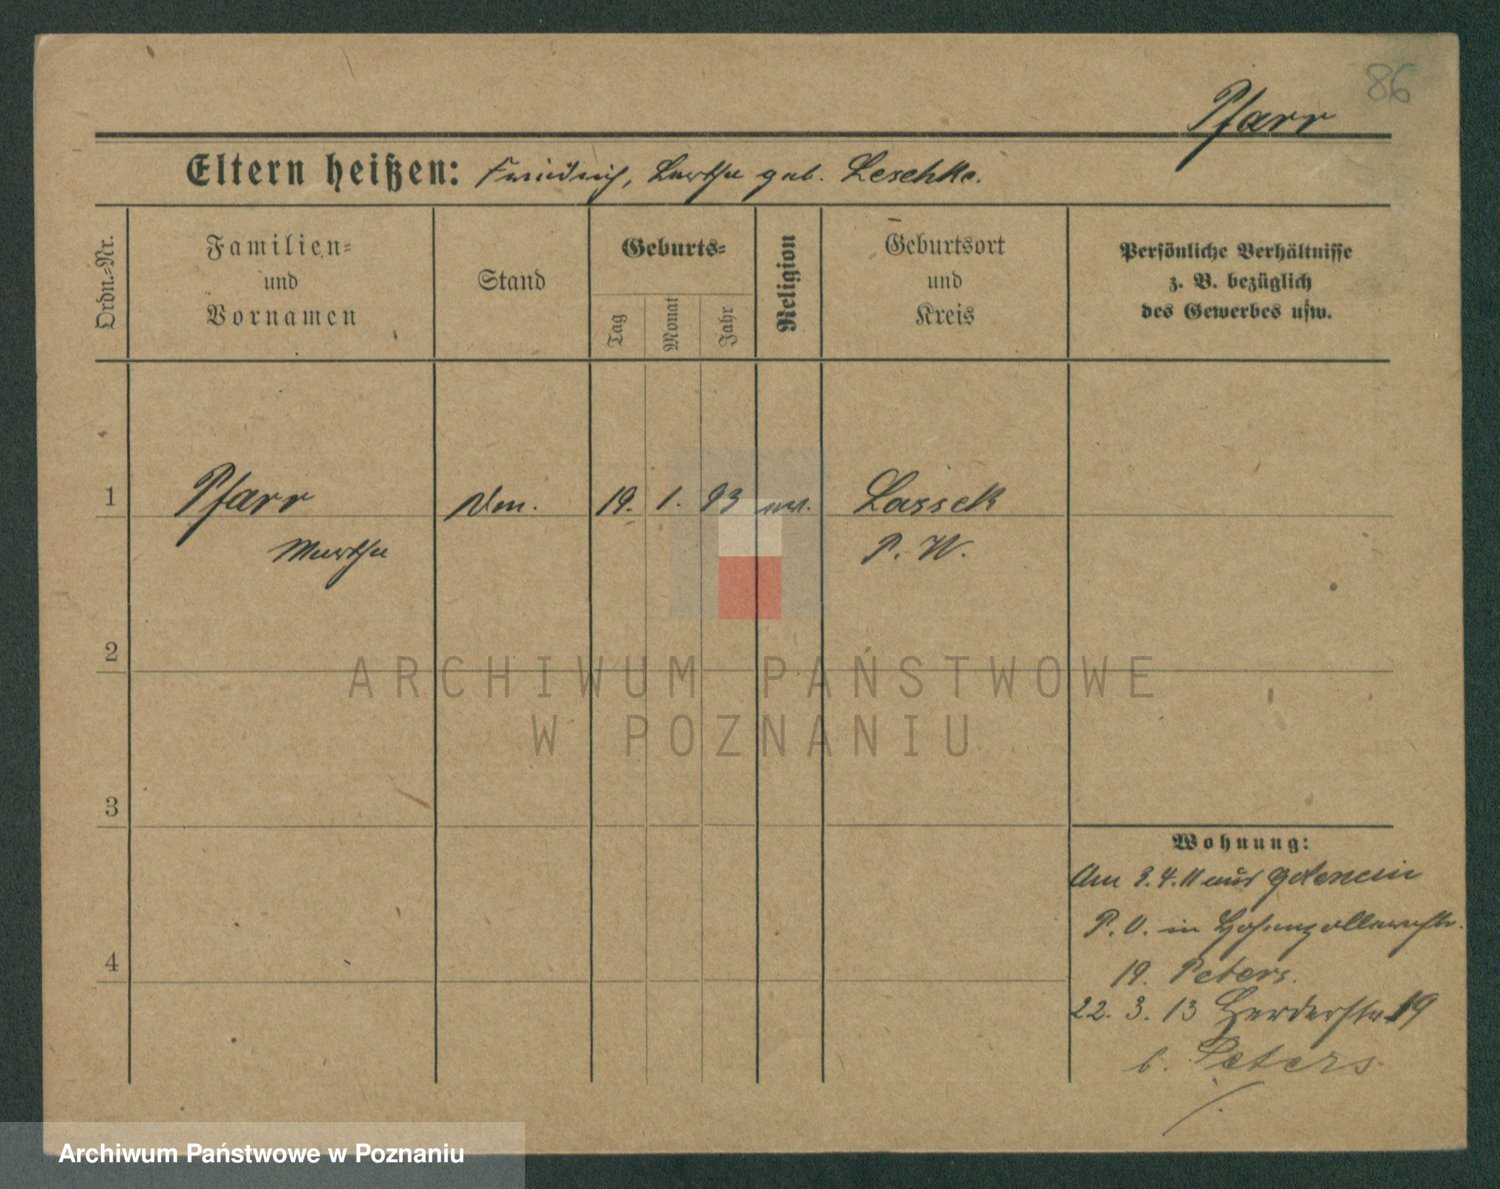 86
Pfarr
Eltern heißen: Friedrich, Bertha geb. Leschke.
Ordn.-Nr.
Familien-
und
Vornamen
Stand
Geburts-
Tag
Monat
Jahr
Religion
Geburtsort
und
Kreis
Persönliche Verhältnisse
z. B. bezüglich
des Gewerbes usw.
1
Pfarr
Martha
19. 1. 93
ev.
Lassek
P. W.
2
3
4
Wohnung:
Am 9.4.11 aus
P. O. in Hohenzollernstr.
19. Peters.
22. 3. 13 Herderstr. 19
b. Peters
ARCHIWUM PAŃSTWOWE
W POZNANIU
Archiwum Państwowe w Poznaniu